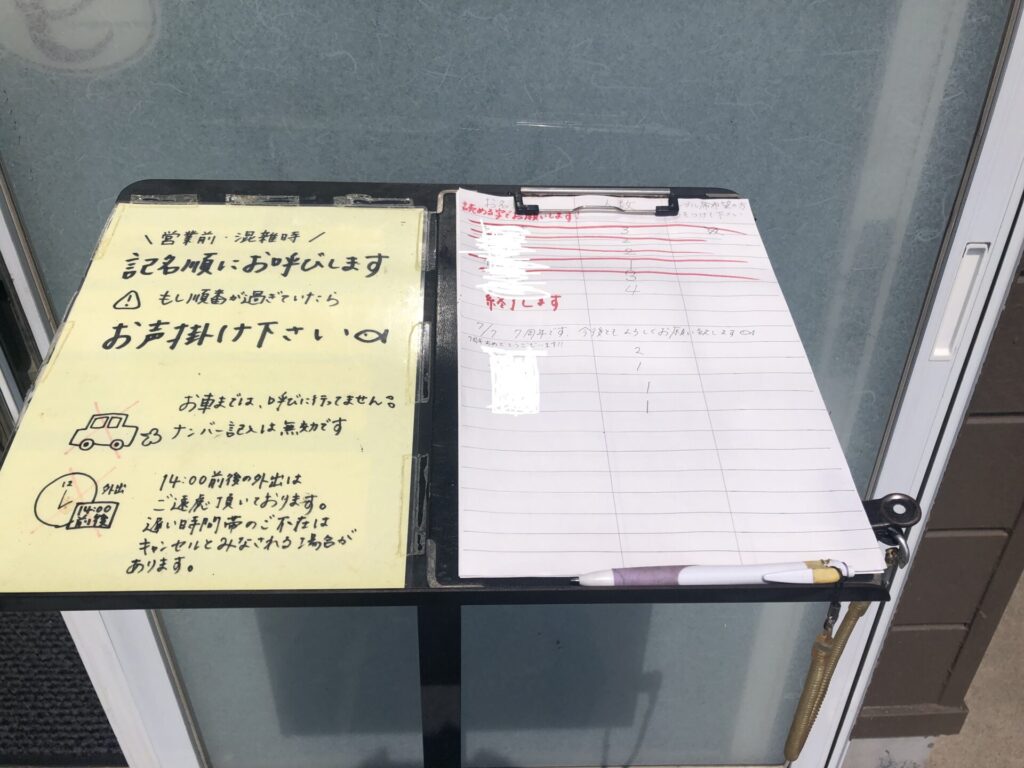 \ 営業前・混雑時 /
記名順にお呼びします
もし順番が過ぎていたら
お声掛け下さい
お車までは、呼びに行ってません
ナンバー記入は無効です
12
外出
14:00
前後
14:00前後の外出は
ご遠慮頂いております。
遅い時間帯のご不在は
キャンセルとみなされる場合が
あります。
人数
読める字でお願いします
3
2
3
4
終了します
7/7 7周年です。今後ともよろしくお願い致します
2
1
1
1